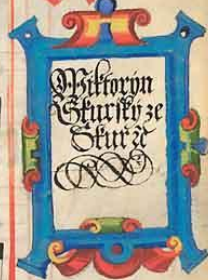 Wiktoryn
Skursky ze
Skur